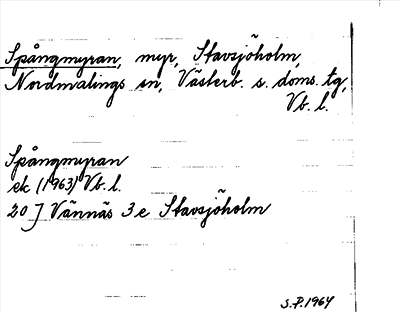 Spångmyran, myr, Stavsjöholm,
Nordmalings sn, Västerb. s. doms. tg,
Vb. l.
Spångmyran
ek (1963) Vb. l.
20 J Vännäs 3e Stavsjöholm
S.P. 1964